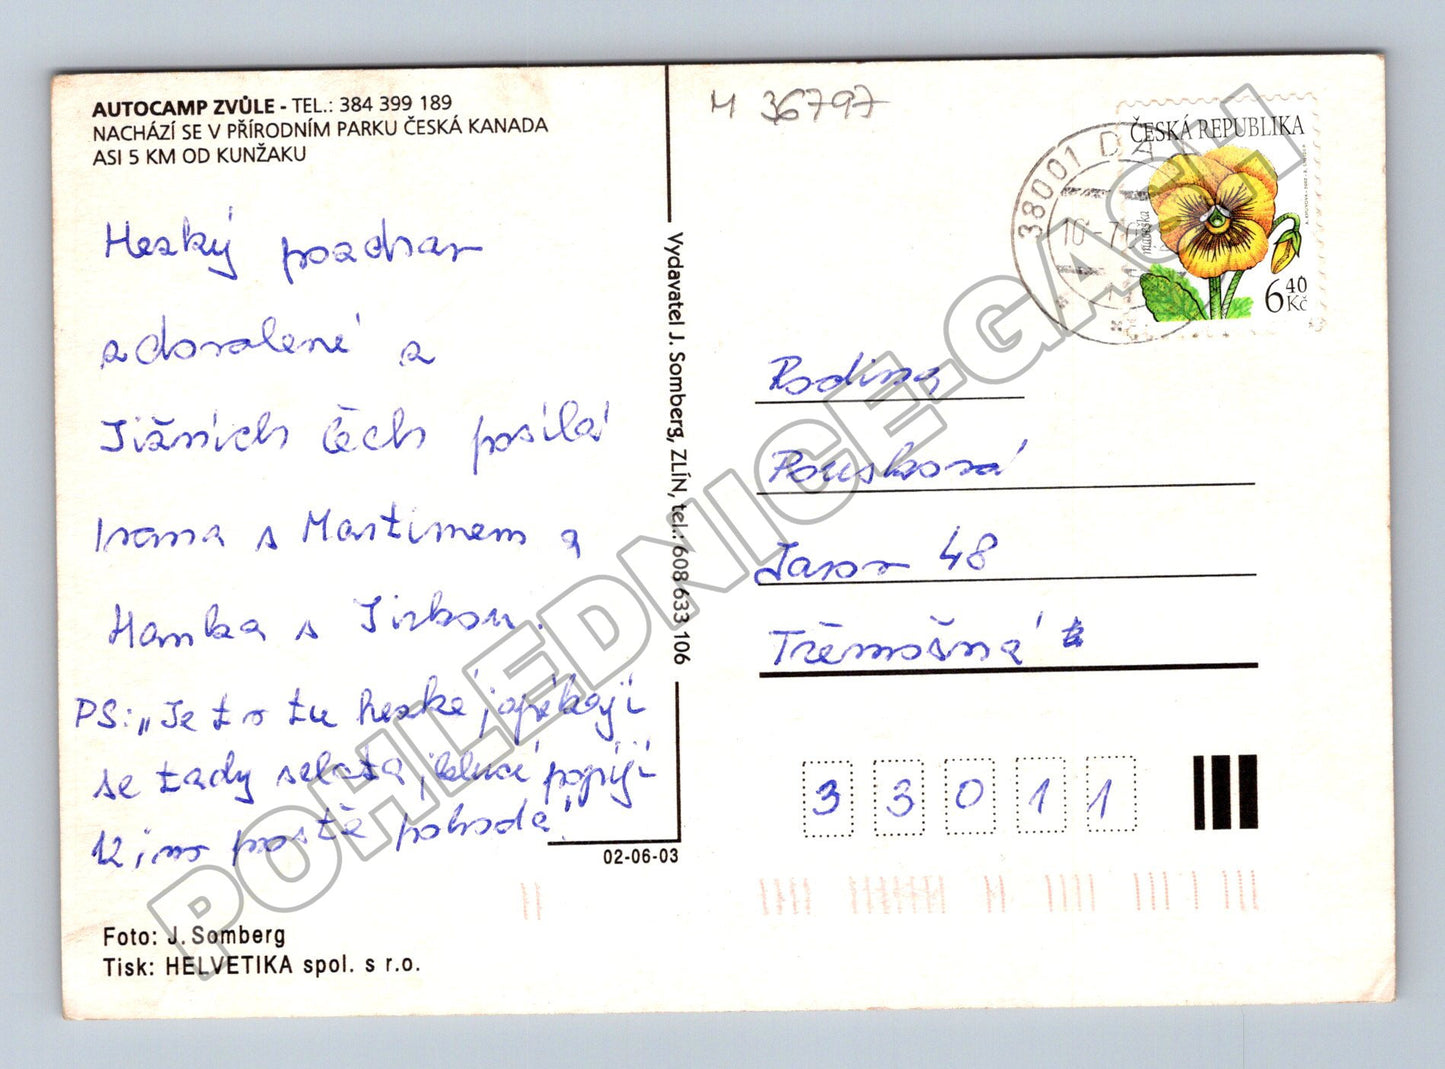 AUTOCAMP ZVŮLE - TEL.: 384 399 189
NACHÁZÍ SE V PŘÍRODNÍM PARKU ČESKÁ KANADA
ASI 5 KM OD KUNŽAKU
Hezký pozdrav
z dovolené z
Jižních Čech posílá
Ivana s Martinem a
Hanka s Jirkou.
PS: „Je to tu hezké, opékají
se tady selata, kluci popíjí
12 ino prostě pohoda."
Foto: J. Somberg
Tisk: HELVETIKA spol. s r.o.
Vydavatel J. Somberg, ZLÍN, tel.: 608 633 106
02-06-03
M 36797
38001 DA
10-7
ČESKÁ REPUBLIKA
maceška
6 40 Kč
Rodina
Pousková
Javor 48
Třemošná
33011
POHLEDNICE-GASH